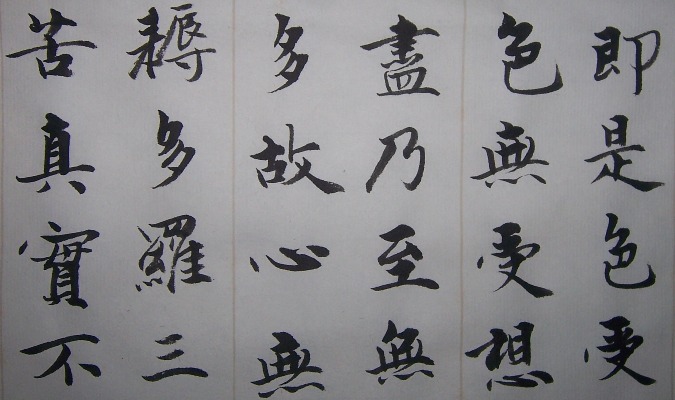 即是色受
色無受想
盡乃至無
多故心無
耨多羅三
苦真實不